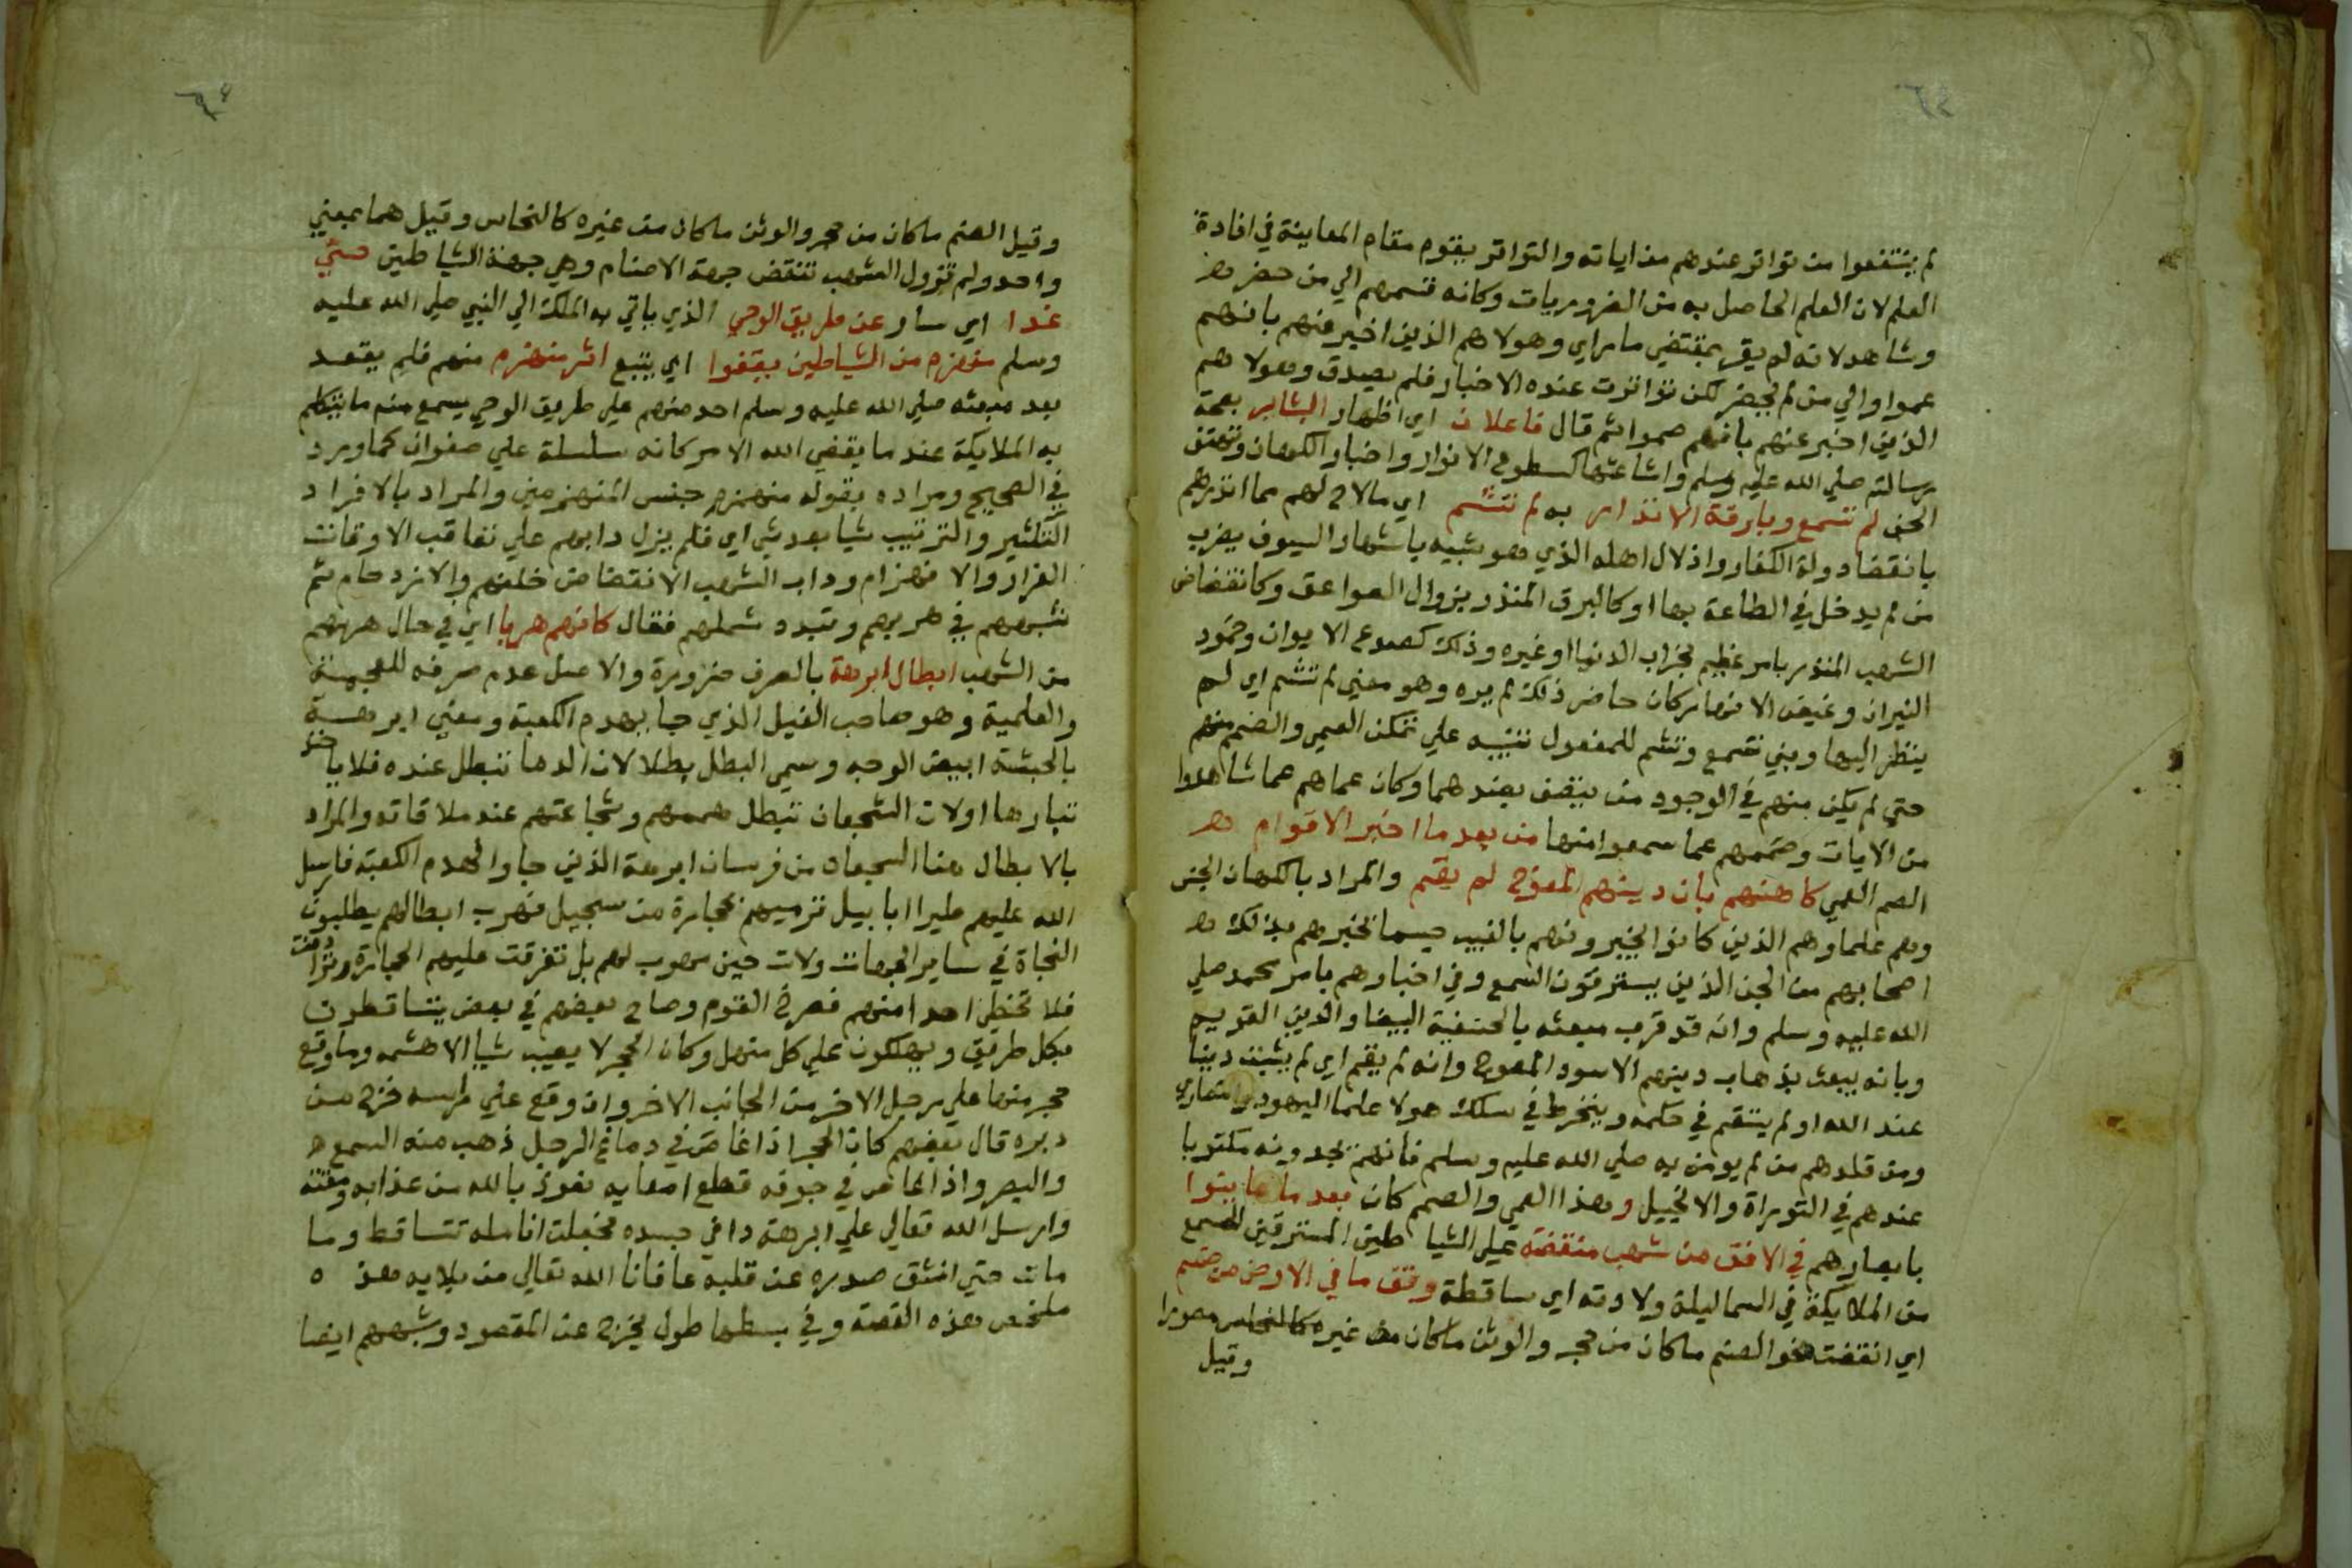 ٦٤
لم ينتفعوا من تواتر عندهم من اياته والتواتر يقوم مقام المعاينة في افادة
العلم لان العلم الحاصل به من الضروريات وكانه قسمهم الي من حضر
وشاهد لانه لم يقر بمقتضي ما راي وهولا هم الذين اخبر عنهم بانهم
عموا والي من لم يحضر لكن تواترت عنده الاخبار فلم يصدق وهولا هم
الذين اخبر عنهم بانهم صموا ثم قال فاعلان اي اظهار البشاير بعمة
رسالته صلي الله عليه وسلم واشاعتها كسطوع الانوار واخبار الكهان وهتف
الجن لم تسمع وبارقة الانذار به لم تشم اي ما لاح لهم مما انذرهم
بانقضا دولة الكفار واذلال اهله الذي هو شبيه باشهار السيوف بضرب
من لم يدخل في الطاعة بها او كالبرق المنذر بنزول الصواعق وكانقضاض
الشهب المنذر بامر عظيم بخراب الدنيا او غيره وذلك كصدع الايوان وخمود
النيران وغيض الانهار كان حاضر ذلك لم يره وهو معني لم تشم اي لم
ينظر اليها وبني تسمع وتشم للمفعول تنبيه علي تمكن العمي والصم منهم
حتي لم يكن منهم في الوجود من يتصف بضدهما وكان عماهم عما شاهدوا
من الايات وصممهم عما سمعوا منها من بعد ما اخبر الاقوام
الصم العمي كاهنهم بان دينهم المعوج لم يقم والمراد بالكهان الجنس
وهم علماوهم الذين كانوا يخبرونهم بالغيب حسبما تخبرهم بذلك
اصحابهم من الجن الذين يسترقون السمع وفي اخبارهم بامر محمد صلي
الله عليه وسلم وانه قد قرب مبعثه بالحنيفية البيضا والدين القويم
وبانه يبعث بذهاب دينهم الاسود المعوج وانه لم يقم اي لم يثبت دينا
عند الله او لم يستقم في حكمه وينخرط في سلك هولا علما اليهود والنصاري
ومن قلدهم من لم يومن به صلي الله عليه وسلم فانهم يجدونه مكتوبا
عندهم في التوراة والانجيل وهذا العمي والصمم كان بعد ما عاينوا
بابصارهم في الافق من شهب منقضة علي الشياطين المسترقين للسمع
من الملايكة في السما ليلة ولادته اي ساقطة وفق ما في الارض من صنم
اي انقضت نحو الصنم ما كان من حجر والوثن ما كان من غيره كالنحاس مصورا
وقيل
٦٤
وقيل الصنم ما كان من حجر والوثن ما كان من غيره كالنحاس وقيل هما بمعني
واحد ولم تزول الشهب تنقض جهة الاصنام وهي جهة الشياطين حتي
غدا اي سار عن طريق الوحي الذي ياتي به الملك الي النبي صلي الله عليه
وسلم منهزم من الشياطين يقفوا اي يتبع اثر منهزم منهم فلم يقعد
بعد مبعثه صلي الله عليه وسلم احد منهم علي طريق الوحي يسمع منه ما يتكلم
به الملايكة عند ما يقضي الله الامر كانه سلسلة علي صفوان كما ورد
في الصحيح ومراده بقوله منهزم جنس المنهزمين والمراد بالافراد
التكثير والترتيب شيا بعد شي اي فلم يزل دابهم علي تعاقب الاوقات
الفرار والانهزام وداب الشهب الانقضاض خلفهم والازدحام ثم
شبههم في هربهم وتبدد شملهم فقال كانهم هربا اي في حال هربهم
من الشهب ابطال ابرهة بالصرف ضرورة والاصل عدم صرفه للعجمة
والعلمية وهو صاحب الفيل الذي جا يهدم الكعبة ومعني ابرهة
بالحبشة ابيض الوجه وسمي البطل بطلا لان الدما تبطل عنده فلا ياخذ
ثبارها او لان الشجعان تبطل هممهم وشجاعتهم عند ملاقاته والمراد
بالابطال هنا الشجعان من فرسان ابرهة الذين جاوا لهدم الكعبة فارسل
الله عليهم طيرا ابابيل ترميهم بحجارة من سجيل فهرب ابطالهم يطلبون
النجاة في ساير الجهات ولات حين هروب لهم بل تفرقت عليهم الحجارة وتوافت
فلا تخطي احدا منهم فصرخ القوم وصاح بعضهم في بعض يتساقطون
بكل طريق ويهلكون علي كل منهل وكان الحجر لا يصيب شيا الا هشمه وما وقع
حجر منها علي رجل الا خر من الجانب الاخر وان وقع علي راسه خرج من
دبره قال بعضهم كان الحجر اذا غاص في دماغ الرجل ذهب منه السمع
والبصر واذا غاص في جوفه قطع امعايه نعوذ بالله من عذابه ومقته
وارسل الله تعالي علي ابرهة دا في جسده فجعلت انامله تتساقط وما
مات حتي انشق صدره عن قلبه عافانا الله تعالي من بلايه هذ ٥
ملخص هذه القصة وفي بسطها طول يخرج عن المقصود وشبههم ايضا